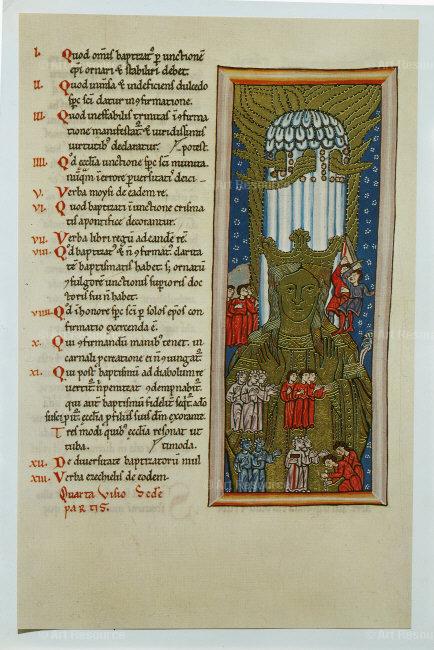 I. Quod omis baptizat' p unctionē
epi ornari & stabiliri debet.
II. Quod inmsa & indeficiens dulcedo
spc sci datur in ꝯfirmatione.
III. Quod ineffabilis trinitas in ꝯfirma
tione manifestat' & uiridissimis
uirtutib' declaratur. potest.
IIII. Qd ecclia unctione spc sci munita.
nūqm in errore puersitatis deici
V. Verba moysi de eadem re.
VI. Quod baptizati in unctione crisma
tis a pontifice decorantur.
VII. Verba libri regū ad eandē rē.
VIII. Qd baptizat' & n ꝯfirmat' clarita
tē baptismatis habet s; ornatū
ꝯ fulgorē unctionis supioris doc
toris sui n habet.
VIIII. Qd in honore spc sci p solos epos con
firmatio exercenda ē.
X. Qui ꝯfirmandū manib' tenet. in
carnali pcreatione ei n ꝯiungat'.
XI. Qui post baptismū ad diabolum re
uertit' si n peniteat ꝯdempnabit'.
qui aut baptismū fidelit seqt' a do
suscipit' ecclia p filiis suis dm exorante.
Tres modi quib' ecclia resonat ut
tuba. timoda.
XII. De diuersitate baptizatorū mul
XIII. Verba ezechielis de eodem.
Quarta Visio Scde
partis.
© Art Resource
© Art Resource